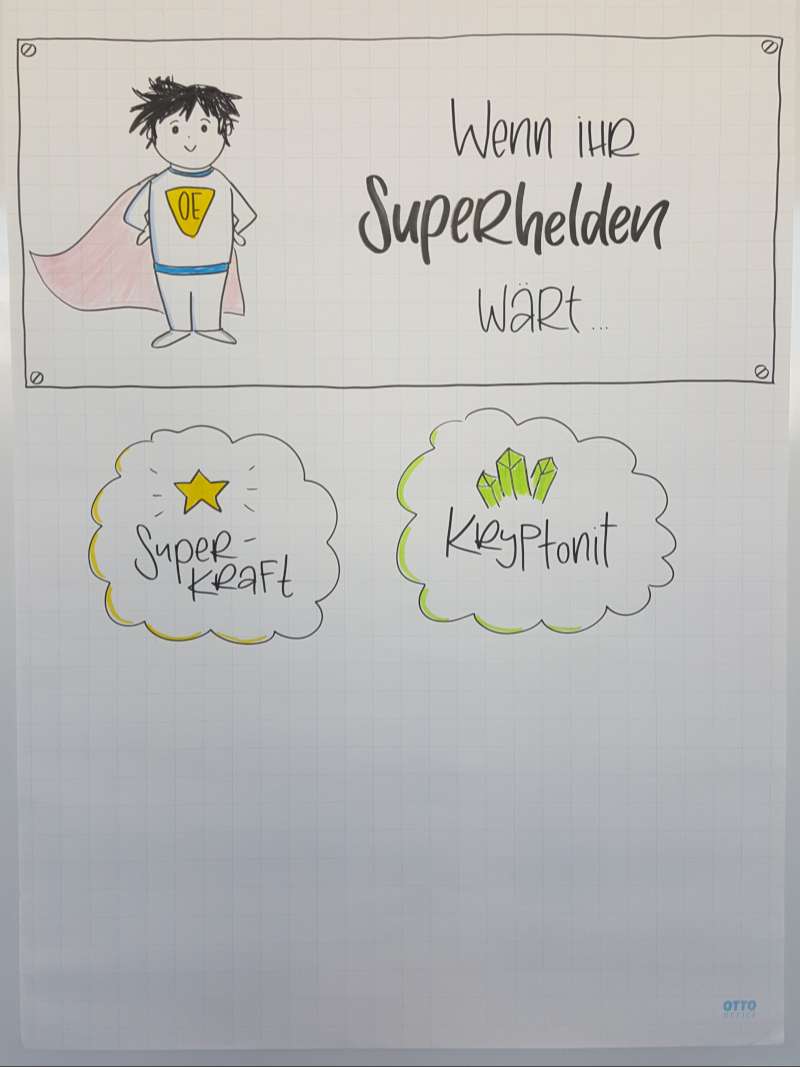 OE
Wenn ihr
Superhelden
wärt...
Super-
kraft
Kryptonit
OTTO
OFFICE